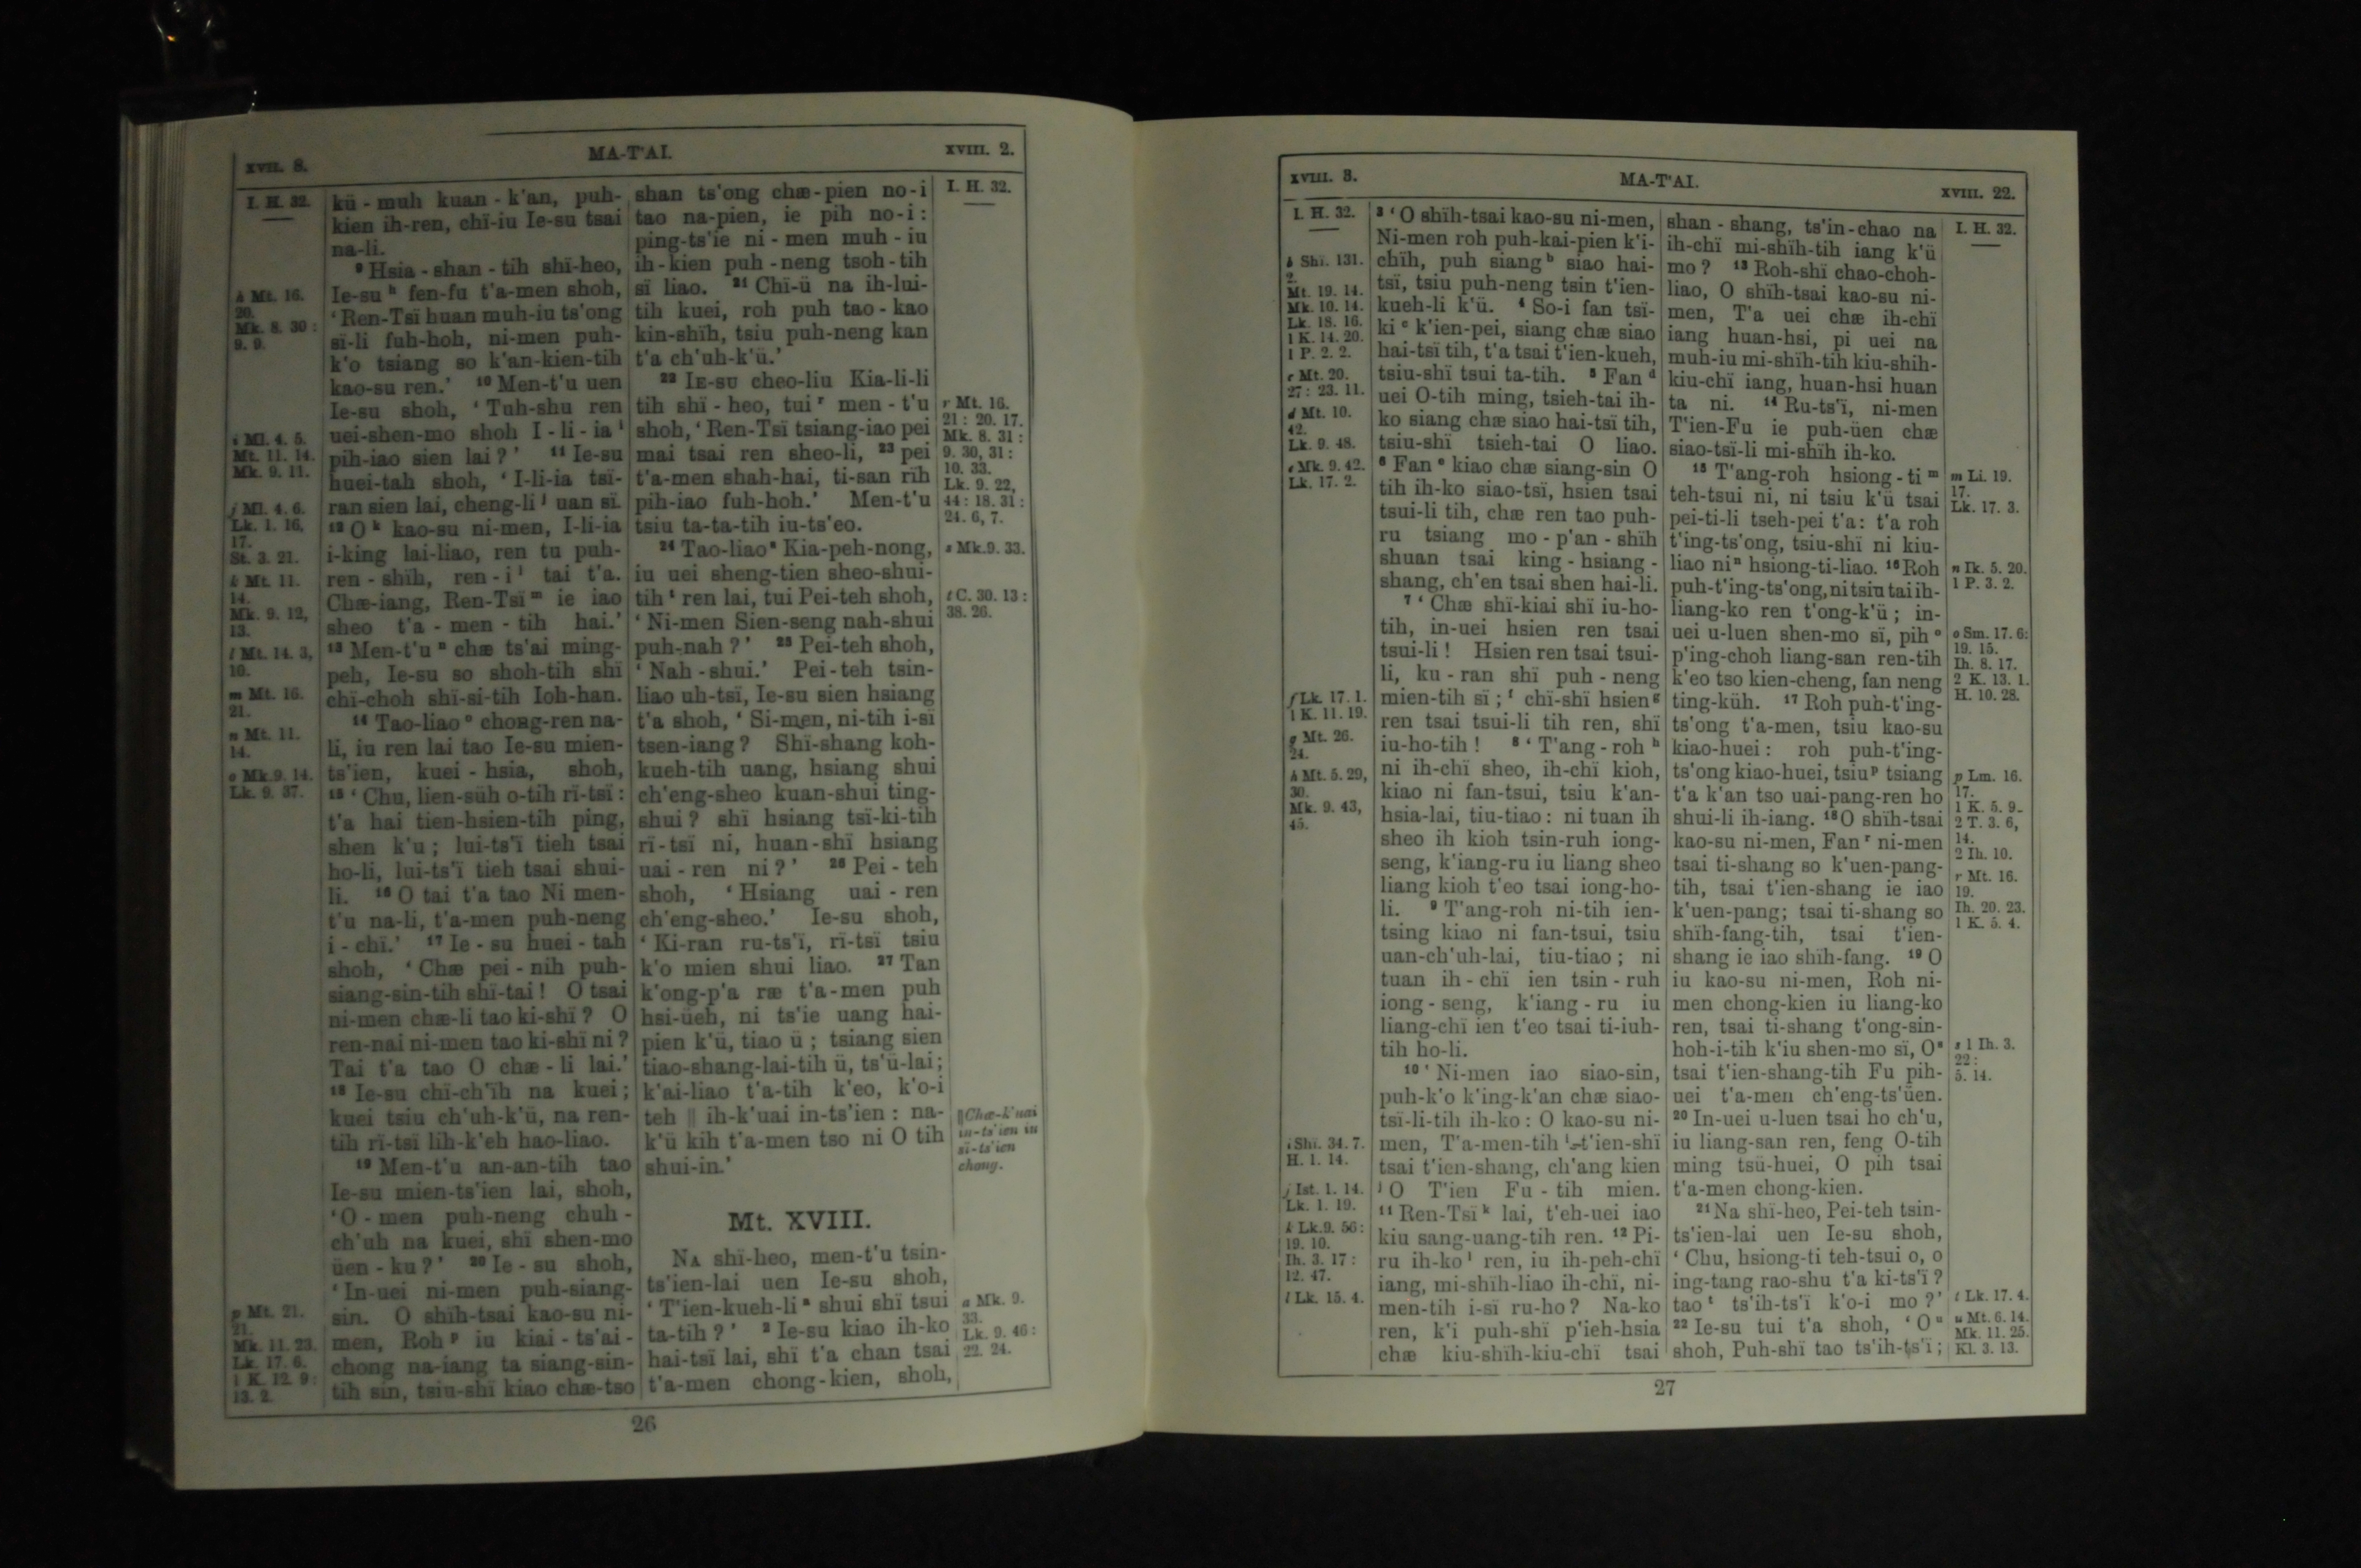 XVII. 8.
MA-T'AI.
XVIII. 2.
I. H. 32.
h Mt. 16.
20.
Mk. 8. 30 :
9. 9.
i Ml. 4. 5.
Mt. 11. 14.
Mk. 9. 11.
j Ml. 4. 6.
Lk. 1. 16,
17.
St. 3. 21.
k Mt. 11.
14.
Mk. 9. 12,
13.
l Mt. 14. 3,
10.
m Mt. 16.
21.
n Mt. 11.
14.
o Mk. 9. 14.
Lk. 9. 37.
p Mt. 21.
21.
Mk. 11. 23.
Lk. 17. 6.
1 K. 12. 9:
13. 2.
kü - muh kuan - k'an, puh-
kien ih-ren, chï-iu Ie-su tsai
na-li.
⁹ Hsia - shan - tih shï-heo,
Ie-su ʰ fen-fu t'a-men shoh,
‘Ren-Tsï huan muh-iu ts'ong
sï-li fuh-hoh, ni-men puh-
k'o tsiang so k'an-kien-tih
kao-su ren.’ ¹⁰ Men-t'u uen
Ie-su shoh, ‘Tuh-shu ren
uei-shen-mo shoh I - li - ia ⁱ
pih-iao sien lai?’ ¹¹ Ie-su
huei-tah shoh, ‘I-li-ia tsï-
ran sien lai, cheng-li ʲ uan sï.
¹² O ᵏ kao-su ni-men, I-li-ia
i-king lai-liao, ren tu puh-
ren - shïh, ren - i ˡ tai t'a.
Chæ-iang, Ren-Tsï ᵐ ie iao
sheo t'a - men - tih hai.’
¹³ Men-t'u ⁿ chæ ts'ai ming-
peh, Ie-su so shoh-tih shï
chï-choh shï-si-tih Ioh-han.
¹⁴ Tao-liao ᵒ chong-ren na-
li, iu ren lai tao Ie-su mien-
ts'ien, kuei - hsia, shoh,
¹⁵ ‘Chu, lien-süh o-tih rï-tsï :
t'a hai tien-hsien-tih ping,
shen k'u ; lui-ts'ï tieh tsai
ho-li, lui-ts'ï tieh tsai shui-
li. ¹⁶ O tai t'a tao Ni men-
t'u na-li, t'a-men puh-neng
i - chï.’ ¹⁷ Ie - su huei - tah
shoh, ‘Chæ pei - nih puh-
siang-sin-tih shï-tai! O tsai
ni-men chæ-li tao ki-shï? O
ren-nai ni-men tao ki-shï ni?
Tai t'a tao O chæ - li lai.’
¹⁸ Ie-su chï-ch'ïh na kuei;
kuei tsiu ch'uh-k'ü, na ren-
tih rï-tsï lih-k'eh hao-liao.
¹⁹ Men-t'u an-an-tih tao
Ie-su mien-ts'ien lai, shoh,
‘O - men puh-neng chuh -
ch'uh na kuei, shï shen-mo
üen - ku?’ ²⁰ Ie - su shoh,
‘In-uei ni-men puh-siang-
sin. O shïh-tsai kao-su ni-
men, Roh ᵖ iu kiai - ts'ai -
chong na-iang ta siang-sin-
tih sin, tsiu-shï kiao chæ-tso
shan ts'ong chæ-pien no-i
tao na-pien, ie pih no-i :
ping-ts'ie ni - men muh - iu
ih - kien puh - neng tsoh - tih
sï liao. ²¹ Chï-ü na ih-lui-
tih kuei, roh puh tao - kao
kin-shïh, tsiu puh-neng kan
t'a ch'uh-k'ü.’
²² IE-SU cheo-liu Kia-li-li
tih shï - heo, tui ʳ men - t'u
shoh, ‘Ren-Tsï tsiang-iao pei
mai tsai ren sheo-li, ²³ pei
t'a-men shah-hai, ti-san rïh
pih-iao fuh-hoh.’ Men-t'u
tsiu ta-ta-tih iu-ts'eo.
²⁴ Tao-liao ˢ Kia-peh-nong,
iu uei sheng-tien sheo-shui-
tih ᵗ ren lai, tui Pei-teh shoh,
‘Ni-men Sien-seng nah-shui
puh-nah?’ ²⁵ Pei-teh shoh,
‘Nah - shui.’ Pei - teh tsin-
liao uh-tsï, Ie-su sien hsiang
t'a shoh, ‘Si-men, ni-tih i-sï
tsen-iang? Shï-shang koh-
kueh-tih uang, hsiang shui
ch'eng-sheo kuan-shui ting-
shui? shï hsiang tsï-ki-tih
rï-tsï ni, huan-shï hsiang
uai - ren ni?’ ²⁶ Pei - teh
shoh, ‘Hsiang uai - ren
ch'eng-sheo.’ Ie-su shoh,
‘Ki-ran ru-ts'ï, rï-tsï tsiu
k'o mien shui liao. ²⁷ Tan
k'ong-p'a ræ t'a-men puh
hsi-üeh, ni ts'ie uang hai-
pien k'ü, tiao ü ; tsiang sien
tiao-shang-lai-tih ü, ts'ü-lai;
k'ai-liao t'a-tih k'eo, k'o-i
teh ‖ ih-k'uai in-ts'ien : na-
k'ü kih t'a-men tso ni O tih
shui-in.’
Mt. XVIII.
NA shï-heo, men-t'u tsin-
ts'ien-lai uen Ie-su shoh,
‘T'ien-kueh-li ᵃ shui shï tsui
ta-tih?’ ² Ie-su kiao ih-ko
hai-tsï lai, shï t'a chan tsai
t'a-men chong-kien, shoh,
I. H. 32.
r Mt. 16.
21 : 20. 17.
Mk. 8. 31 :
9. 30, 31 :
10. 33.
Lk. 9. 22,
44 : 18. 31 :
24. 6, 7.
s Mk. 9. 33.
t C. 30. 13 :
38. 26.
‖ Chæ-k'uai
in-ts'ien iu
sï-ts'ien
chong.
a Mk. 9.
33.
Lk. 9. 46 :
22. 24.
26
XVIII. 3.
MA-T'AI.
XVIII. 22.
I. H. 32.
b Shï. 131.
2.
Mt. 19. 14.
Mk. 10. 14.
Lk. 18. 16.
1 K. 14. 20.
1 P. 2. 2.
c Mt. 20.
27 : 23. 11.
d Mt. 10.
42.
Lk. 9. 48.
e Mk. 9. 42.
Lk. 17. 2.
f Lk. 17. 1.
1 K. 11. 19.
g Mt. 26.
24.
h Mt. 5. 29,
30.
Mk. 9. 43,
45.
i Shï. 34. 7.
H. 1. 14.
j Ist. 1. 14.
Lk. 1. 19.
k Lk. 9. 56 :
19. 10.
Ih. 3. 17 :
12. 47.
l Lk. 15. 4.
³ ‘O shïh-tsai kao-su ni-men,
Ni-men roh puh-kai-pien k'i-
chïh, puh siang ᵇ siao hai-
tsï, tsiu puh-neng tsin t'ien-
kueh-li k'ü. ⁴ So-i fan tsï-
ki ᶜ k'ien-pei, siang chæ siao
hai-tsï tih, t'a tsai t'ien-kueh,
tsiu-shï tsui ta-tih. ⁵ Fan ᵈ
uei O-tih ming, tsieh-tai ih-
ko siang chæ siao hai-tsï tih,
tsiu-shï tsieh-tai O liao.
⁶ Fan ᵉ kiao chæ siang-sin O
tih ih-ko siao-tsï, hsien tsai
tsui-li tih, chæ ren tao puh-
ru tsiang mo - p'an - shïh
shuan tsai king - hsiang -
shang, ch'en tsai shen hai-li.
⁷ ‘Chæ shï-kiai shï iu-ho-
tih, in-uei hsien ren tsai
tsui-li! Hsien ren tsai tsui-
li, ku - ran shï puh - neng
mien-tih sï ; ᶠ chï-shï hsien ᵍ
ren tsai tsui-li tih ren, shï
iu-ho-tih! ⁸ ‘T'ang - roh ʰ
ni ih-chï sheo, ih-chï kioh,
kiao ni fan-tsui, tsiu k'an-
hsia-lai, tiu-tiao : ni tuan ih
sheo ih kioh tsin-ruh iong-
seng, k'iang-ru iu liang sheo
liang kioh t'eo tsai iong-ho-
li. ⁹ T'ang-roh ni-tih ien-
tsing kiao ni fan-tsui, tsiu
uan-ch'uh-lai, tiu-tiao ; ni
tuan ih - chï ien tsin - ruh
iong - seng, k'iang - ru iu
liang-chï ien t'eo tsai ti-iuh-
tih ho-li.
¹⁰ ‘Ni-men iao siao-sin,
puh-k'o k'ing-k'an chæ siao-
tsï-li-tih ih-ko : O kao-su ni-
men, T'a-men-tih ⁱ t'ien-shï
tsai t'ien-shang, ch'ang kien
ʲ O T'ien Fu - tih mien.
¹¹ Ren-Tsï ᵏ lai, t'eh-uei iao
kiu sang-uang-tih ren. ¹² Pi-
ru ih-ko ˡ ren, iu ih-peh-chï
iang, mi-shïh-liao ih-chï, ni-
men-tih i-sï ru-ho? Na-ko
ren, k'i puh-shï p'ieh-hsia
chæ kiu-shïh-kiu-chï tsai
shan - shang, ts'in-chao na
ih-chï mi-shïh-tih iang k'ü
mo? ¹³ Roh-shï chao-choh-
liao, O shïh-tsai kao-su ni-
men, T'a uei chæ ih-chï
iang huan-hsi, pi uei na
muh-iu mi-shïh-tih kiu-shih-
kiu-chï iang, huan-hsi huan
ta ni. ¹⁴ Ru-ts'ï, ni-men
T'ien-Fu ie puh-üen chæ
siao-tsï-li mi-shïh ih-ko.
¹⁵ T'ang-roh hsiong-ti ᵐ
teh-tsui ni, ni tsiu k'ü tsai
pei-ti-li tseh-pei t'a : t'a roh
t'ing-ts'ong, tsiu-shï ni kiu-
liao ni ⁿ hsiong-ti-liao. ¹⁶ Roh
puh-t'ing-ts'ong, ni tsiu tai ih-
liang-ko ren t'ong-k'ü ; in-
uei u-luen shen-mo sï, pih ᵒ
p'ing-choh liang-san ren-tih
k'eo tso kien-cheng, fan neng
ting-küh. ¹⁷ Roh puh-t'ing-
ts'ong t'a-men, tsiu kao-su
kiao-huei : roh puh-t'ing-
ts'ong kiao-huei, tsiu ᵖ tsiang
t'a k'an tso uai-pang-ren ho
shui-li ih-iang. ¹⁸ O shïh-tsai
kao-su ni-men, Fan ʳ ni-men
tsai ti-shang so k'uen-pang-
tih, tsai t'ien-shang ie iao
k'uen-pang; tsai ti-shang so
shïh-fang-tih, tsai t'ien-
shang ie iao shïh-fang. ¹⁹ O
iu kao-su ni-men, Roh ni-
men chong-kien iu liang-ko
ren, tsai ti-shang t'ong-sin-
hoh-i-tih k'iu shen-mo sï, O ˢ
tsai t'ien-shang-tih Fu pih-
uei t'a-men ch'eng-ts'üen.
²⁰ In-uei u-luen tsai ho ch'u,
iu liang-san ren, feng O-tih
ming tsü-huei, O pih tsai
t'a-men chong-kien.
²¹ Na shï-heo, Pei-teh tsin-
ts'ien-lai uen Ie-su shoh,
‘Chu, hsiong-ti teh-tsui o, o
ing-tang rao-shu t'a ki-ts'ï?
tao ᵗ ts'ih-ts'ï k'o-i mo?’
²² Ie-su tui t'a shoh, ‘O ᵘ
shoh, Puh-shï tao ts'ih-ts'ï ;
I. H. 32.
m Li. 19.
17.
Lk. 17. 3.
n Ik. 5. 20.
1 P. 3. 2.
o Sm. 17. 6:
19. 15.
Ih. 8. 17.
2 K. 13. 1.
H. 10. 28.
p Lm. 16.
17.
1 K. 5. 9-
2 T. 3. 6,
14.
2 Ih. 10.
r Mt. 16.
19.
Ih. 20. 23.
1 K. 5. 4.
s 1 Ih. 3.
22 :
5. 14.
t Lk. 17. 4.
u Mt. 6. 14.
Mk. 11. 25.
Kl. 3. 13.
27